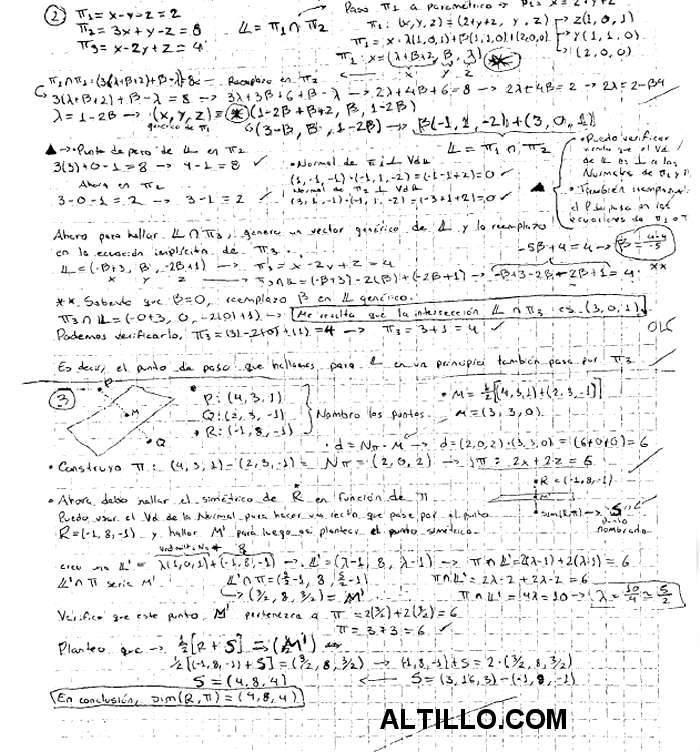 ② π₁ = x-y-z = 2
π₂ = 3x+y-z = 8
π₃ = x-2y+z = 4
𝕃 = π₁ ∩ π₂
Paso π₁ a paramétrico →
π₁: (x,y,z) = (2+y+z, y, z)
z(1,0,1)
y(1,1,0)
(2,0,0)
π₁ = x = λ(1,0,1)+β(1,1,0)+(2,0,0)
π₁: x = (λ+β+2, β, λ)
x y z
Reemplazo en π₂
3(λ+β+2)+β-λ = 8 → 3λ+3β+6+β-λ → 2λ+4β+6 = 8 → 2λ+4β = 2 → 2λ = 2-β4
λ = 1-2β → (x,y,z) = (1-2β+β+2, β, 1-2β)
genérico de π₁
(3-β, β, 1-2β) → β(-1,1,-2)+(3,0,1)
𝕃 = π₁ ∩ π₂
▲ → Punto de paso de 𝕃 en π₂
3(3)+0-1 = 8 → 9-1 = 8 ✓
Ahora en π₁
3-0-1 = 2 → 3-1 = 2 ✓
• Normal de π₁ ⊥ Vd 𝕃
(1,-1,-1)·(-1,1,-2) = (-1-1+2) = 0 ✓
Normal de π₂ ⊥ Vd 𝕃
(3,1,-1)·(-1,1,-2) = (-3+1+2) = 0 ✓
• Puedo verificar
viendo que el Vd
de 𝕃 es ⊥ a las
Normales de π₁ y
• También reemplazar
el P de paso en las
ecuaciones de π₁ o
Ahora para hallar 𝕃 ∩ π₃, genero un vector genérico de 𝕃 y lo reemplazo
en la ecuación implícita de π₃.
-5β+4 = 4 → β = 4-4/-5
**
𝕃 = (-β+3, β, -2β+1) → π₃ = x-2y+z = 4
x y z
π₃ ∩ 𝕃 = (-β+3)-2(β)+(-2β+1) → -β+3-2β-2β+1 = 4
** Sabiendo que β=0, reemplazo β en 𝕃 genérico.
π₃ ∩ 𝕃 = (-0+3, 0, -2(0)+1) → Me resulta que la intersección 𝕃 ∩ π₃ es (3,0,1)
Podemos verificarlo, π₃ = (3)-2(0)+(1) = 4 → π₃ = 3+1 = 4 ✓
Es decir, el punto de paso que hallamos para 𝕃 en un principio también pasa por π₃
③
P
M
Q
• P: (4,3,1)
Q: (2,3,-1)
• R: (-1,8,-1)
Nombro los puntos
• M = ½[(4,3,1)+(2,3,-1)]
M = (3,3,0)
• d = Nπ · M → d = (2,0,2)·(3,3,0) = (6+0+0) = 6
• Construyo π: (4,3,1)-(2,3,-1) = Nπ = (2,0,2) → π: 2x+2z = 6
• Ahora, debo hallar el simétrico de R en función de π
Puedo usar el Vd de la Normal para hacer una recta que pase por el punto
R=(-1,8,-1) y hallar M' para luego así plantear el punto simétrico.
R = (-1,8,-1)
sim(R,π) → S
punto
nombrado
creo una 𝕃' = λ(1,0,1)+(-1,8,-1) → 𝕃' = (λ-1, 8, λ-1) → π ∩ 𝕃' = 2(λ-1)+2(λ-1) = 6
𝕃' ∩ π sería M'
𝕃' ∩ π = (5/2-1, 8, 5/2-1)
(3/2, 8, 3/2) = M'
π ∩ 𝕃' = 2λ-2+2λ-2 = 6
π ∩ 𝕃' = 4λ = 10 → λ = 10/4 = 5/2
Verifico que este punto M' pertenezca a π = 2(3/2)+2(3/2) = 6
π = 3+3 = 6 ✓
Planteo que → ½[R+S] = (M')
½[(-1,8,-1)+S] = (3/2,8,3/2) → (-1,8,-1)+S = 2·(3/2,8,3/2)
S = (4,8,4) ← S = (3,16,3)-(-1,8,-1)
En conclusión, sim(R,π) = (4,8,4)
ALTILLO.COM